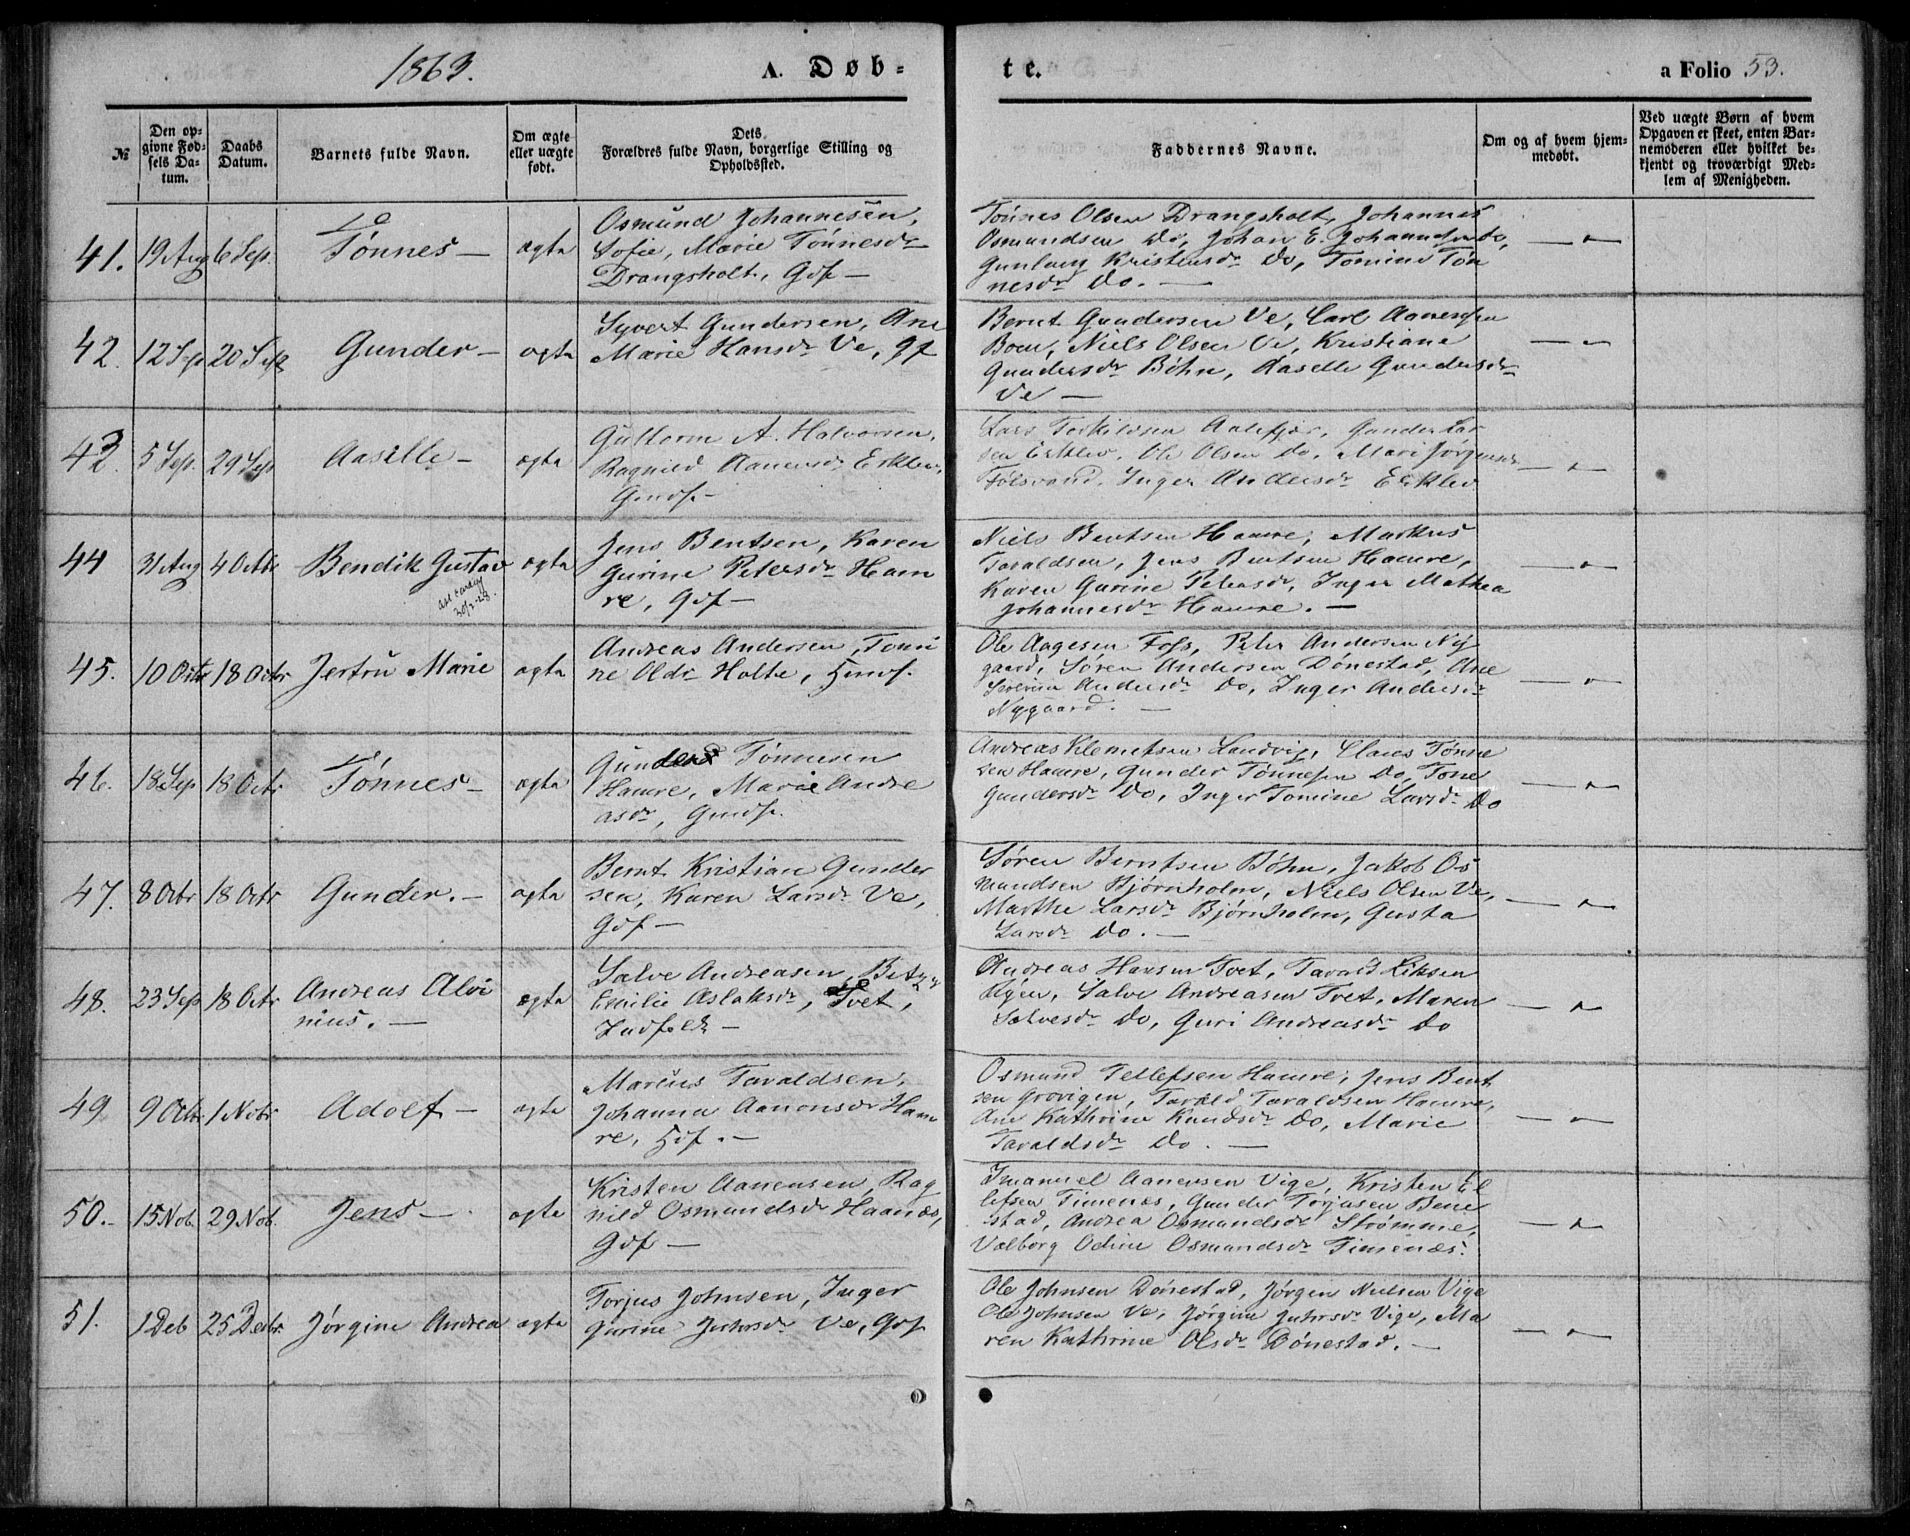 1863.
A. Døb-
te.
a Folio 53.
№
Den op-
givne Fød-
sels Da-
tum.
Daabs
Datum.
Barnets fulde Navn.
Om ægte
eller uægte
født.
Dets
Forældres fulde Navn, borgerlige Stilling og
Opholdssted.
Faddernes Navne.
Om og af hvem hjem-
medøbt.
Ved uægte Børn af hvem
Opgaven er skeet, enten Bar-
nemoderen eller hvilket be-
kjendt og troværdigt Med-
lem af Menigheden.
41. 19 Aug 6 Sep. Tønnes — ægte
Osmund Johannesen,
Sofie, Marie Tønnesdr
Drangsholt, Gdf —
Tønnes Olsen Drangsholt, Johannes
Osmundsen Do, Johan E. Johannesen Do,
Gunborg Kristensdr Do, Tomine Tøn
nesdr Do. —
42. 12 Sep 20 Sep Gunder — ægte
Syvert Gundersen, Ane
Marie Hansdr Ve, gf
Bernt Gundersen Ve, Carl Aanensen
Boen, Niels Olsen Ve, Kristiane
Gundersdr Bøhn, Aaselle Gundersdr
Ve —
43. 5 Sep. 29 Sep Aasille — ægte
Guttorm A. Halvorsen,
Ragnild Aanensdr Erklev,
Gmdf —
Lars Torkildsen Aalefjær, Gunder Lar
sen Erklev, Ole Olsen Do, Mari Jørgensdr
Følsvand, Inger Andersdr Erklev
44 31 Aug 4 Octbr Bendik Gustav ægte
30/2-28.
Jens Bentsen, Karen
Gurine Petersdr Ham
re, Gdf —
Niels Bentsen Hamre, Markus
Taraldsen, Jens Bentsen Hamre,
Karen Gurine Petersdr, Inger Mathea
Johannesdr Hamre. —
45. 10 Octr 18 Octr Jertru Marie ægte
Andreas Andersen, Tomi
ne Olsdr Holte, Hmdf.
Ole Aagesen Foss, Peter Andersen Ny
gaard, Søren Andersen Dønestad, Ane
Severine Andersdr Do, Inger Andersdr
Nygaard. —
46. 18 Sep 18 Octr Tønnes — ægte
Gunder Tønnesen
Hamre, Marie Andre
asdr, Gmdf.
Andreas Klemetsen Landvig, Claus Tønne
sen Hamre, Gunder Tønnesen Do, Tone
Gundersdr Do, Inger Tomine Larsdr Do
47. 8 Octbr 18 Octr Gunder. — ægte
Bernt Kristian Gunder
sen, Karen Larsdr Ve,
Gdf —
Søren Berntsen Bøhn, Jakob Os
mundsen Bjørnholm, Niels Olsen Ve,
Marthe Larsdr Bjørnholm, Gusta
Larsdr Do. —
48. 23 Sep 18 Octr Andreas Alvi
nius. — ægte
Salve Andreasen, Betzy
Emilie Aslaksdr, Tvet,
Indf.
Andreas Hansen Tvet, Tarald Eiksen
Ryen, Salve Andreasen Tvet, Maren
Salvesdr Do, Guri Andreasdr Do
49. 9 Octbr 1 Nobr Adolf — ægte
Marcus Taraldsen,
Johanna Aanonsdr Ham
re, Hdf. —
Osmund Tellefsen Hamre, Jens Bent
sen Grovigen, Tarald Taraldsen Hamre,
Ane Kathrine Knudsdr Do, Marie
Taraldsdr Do. —
50. 15 Nob. 29 Nob. Jens — ægte
Kristen Aanensen, Rag
nild Osmundsdr Haanes,
Gdf —
Imanuel Aanensen Vige, Kristen El
lefsen Timenes, Gunder Torjusen Bene
stad, Andrea Osmundsdr Strømme,
Valborg Odine Osmundsdr Timenes.
51. 1 Deb 25 Debr. Jørgine Andrea ægte
Torjus Johnsen, Inger
Gurine Jehrsdr Ve, Gdf
Ole Johnsen Dønestad, Jørgen Nielsen Vige
Ole Johnsen Ve, Jørgine Jehrsdr Vige, Ma
ren Kathrine Olsdr Dønestad. —